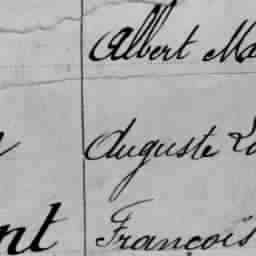 Albert Ma
Auguste Lo
nt François